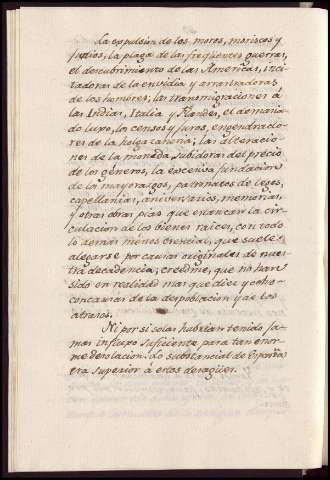 La expulsion de los moros, moriscos y
judios, la plaga de las freqüentes guerras,
el descubrimiento de las Americas, inci-
tadoras de la envidia y arrastradoras
de los hombres; las transmigraciones á
las Indias, Italia y Flandes, el demasia-
do luxo, los censos y juros, engendrado-
res de la holgazaneria; las alteracio-
nes de la moneda, subidoras del precio
de los géneros, la excesiva fundacion
de los mayorazgos, patronatos de legos,
capellanías, aniversarios, memorias,
y otras obras pias que estancan la cir-
culacion de los bienes raices, con todo
lo demas menos esencial, que suele
alegarse por causas originales de nues-
tra decadencia; creedme, que no han
sido en realidad mas que diez y ocho
concausas de la despoblacion y de los
atrasos.
Ni por si solas habrian tenido ja-
mas influxo suficiente para tan enor-
me desolacion. Lo substancial de España
era superior á estos desagües.